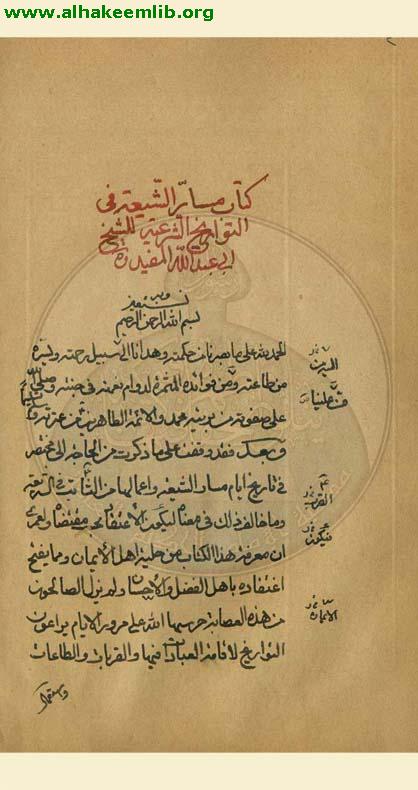 www.alhakeemlib.org
كتاب مسارّ الشّيعة في
التواريخ الشرعية للشيخ
ابي عبدالله المفيد ره
وبه نستعين
بسم الله الرحمن الرحيم
الحمد لله على ما بصرنا من حكمته وهدانا الى سبيل رحمته ويسره
من طاعته ومن فوائده المثمرة لدوام نعمته في جنته وصلى الله
على صفوته من بريته محمد والائمة الطاهرين من عترته
وبعد فقد وقفت على ما ذكرت من الحاجة الى مختصر
في تاريخ ايام مسار الشيعة واعمالها من القرب في الشريعة
وما خالف ذلك في معناه ليكون الاعتقاد بحسب مقتضاه ولعمرى
ان معرفة هذا الكتاب من حلية اهل الايمان ومما يقبح
اعتقاده باهل الفضل والاحسان ولم يزل الصالحون
من هذه العصابة حرسها الله على مرور الايام يراعون
التواريخ لاقامة العبادات فيها والقربات والطاعات
الدين
القرب
فيكون